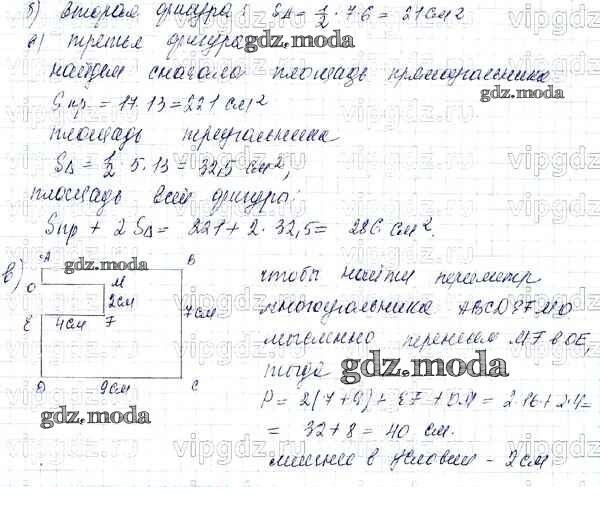 б) вторая фигура: S∆ = 1/2 · 7 · 6 = 21 см²
в) третья фигура
gdz.moda
найдем сначала площадь прямоугольника
gdz.moda
Sпр = 17 · 13 = 221 см²
площадь треугольника
S∆ = 1/2 · 5 · 13 = 32,5 см²,
площадь всей фигуры:
Sпр + 2 S∆ = 221 + 2 · 32,5 = 286 см².
в)
A B
gdz.moda
O M
2см
7см
E 4см F
D 9см C
gdz.moda
чтобы найти периметр
многоугольника ABCDEFMO
мысленно перенесем MF в OE,
тогда
gdz.moda
P = 2(7+9) + EF + OM = 2·16 + 2·4 =
= 32 + 8 = 40 см.
лишнее в условии - 2см